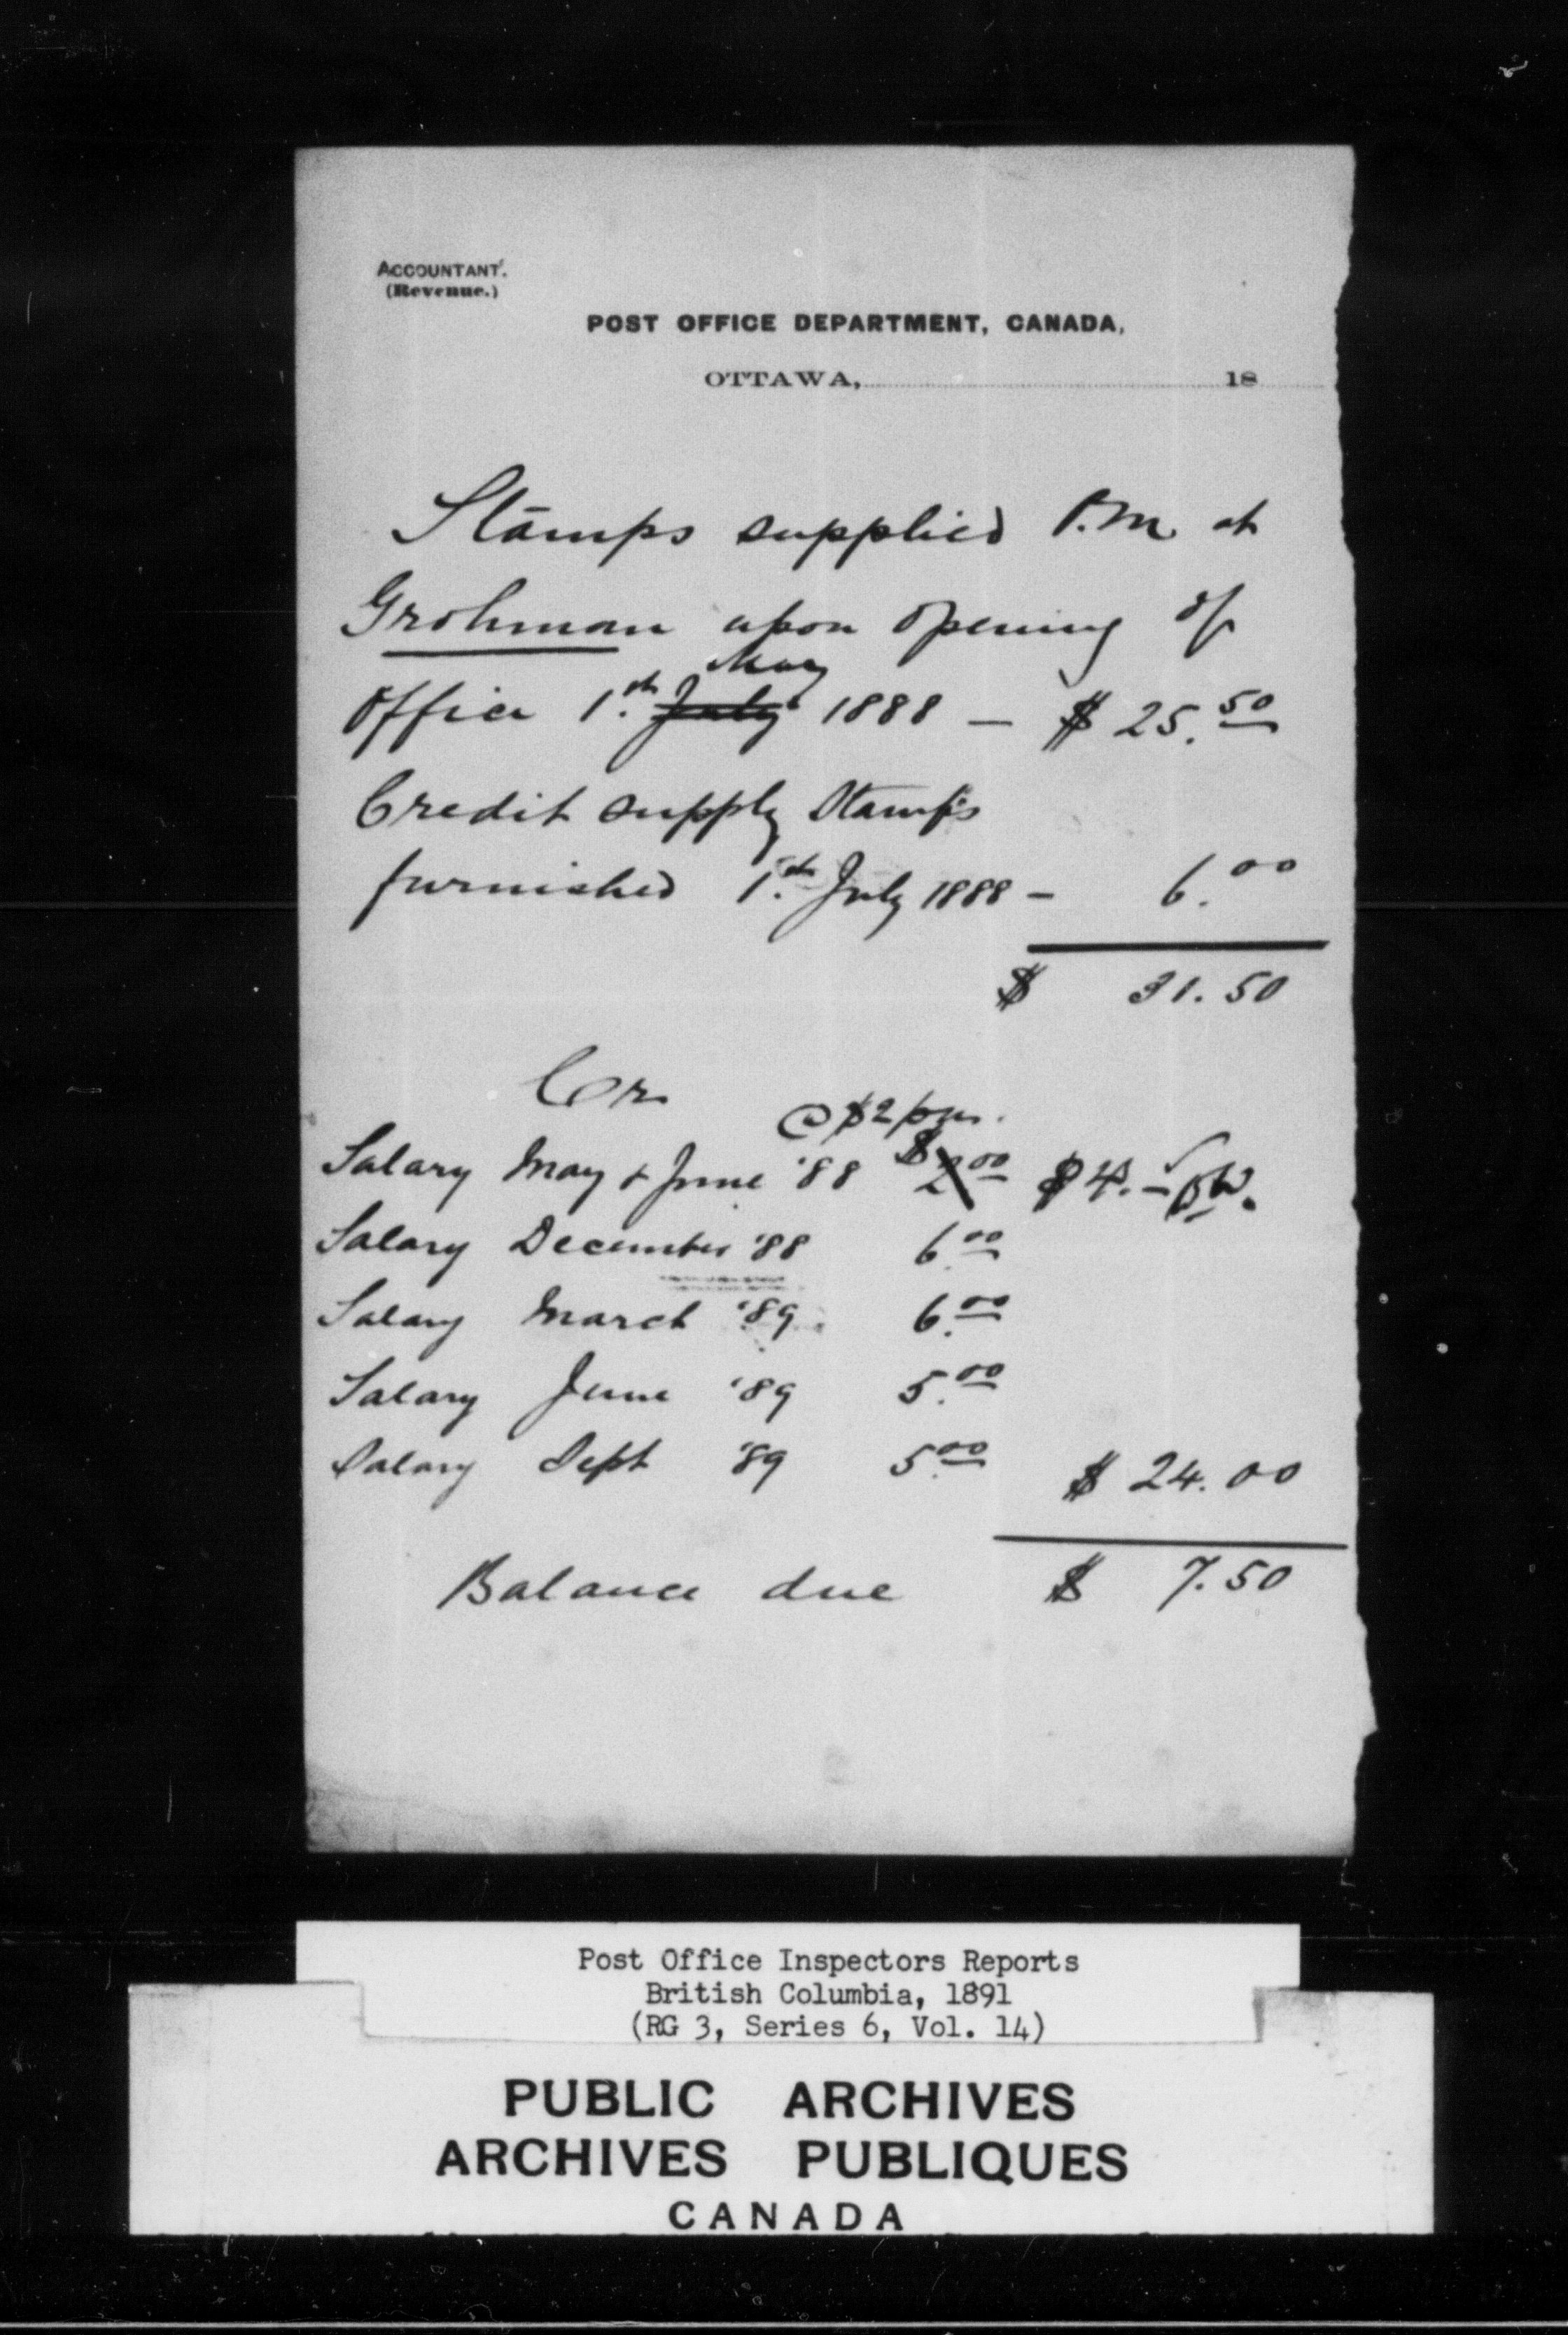 ACCOUNTANT.
(Revenue.)
POST OFFICE DEPARTMENT, CANADA,
OTTAWA, 18
Stamps supplied P.M. at
Grohman upon opening of
May
Office 1.st July 1888 — $ 25.50
Credit supply Stamps
furnished 1.st July 1888 — 6.00
$ 31.50
Cr
@ $2 pm.
Salary May & June '88 $2.00 $4. –
Salary December '88 6.00
Salary March '89 6.00
Salary June '89 5.00
Salary Sept '89 5.00 $ 24.00
Balance due $ 7.50
Post Office Inspectors Reports
British Columbia, 1891
(RG 3, Series 6, Vol. 14)
PUBLIC ARCHIVES
ARCHIVES PUBLIQUES
CANADA